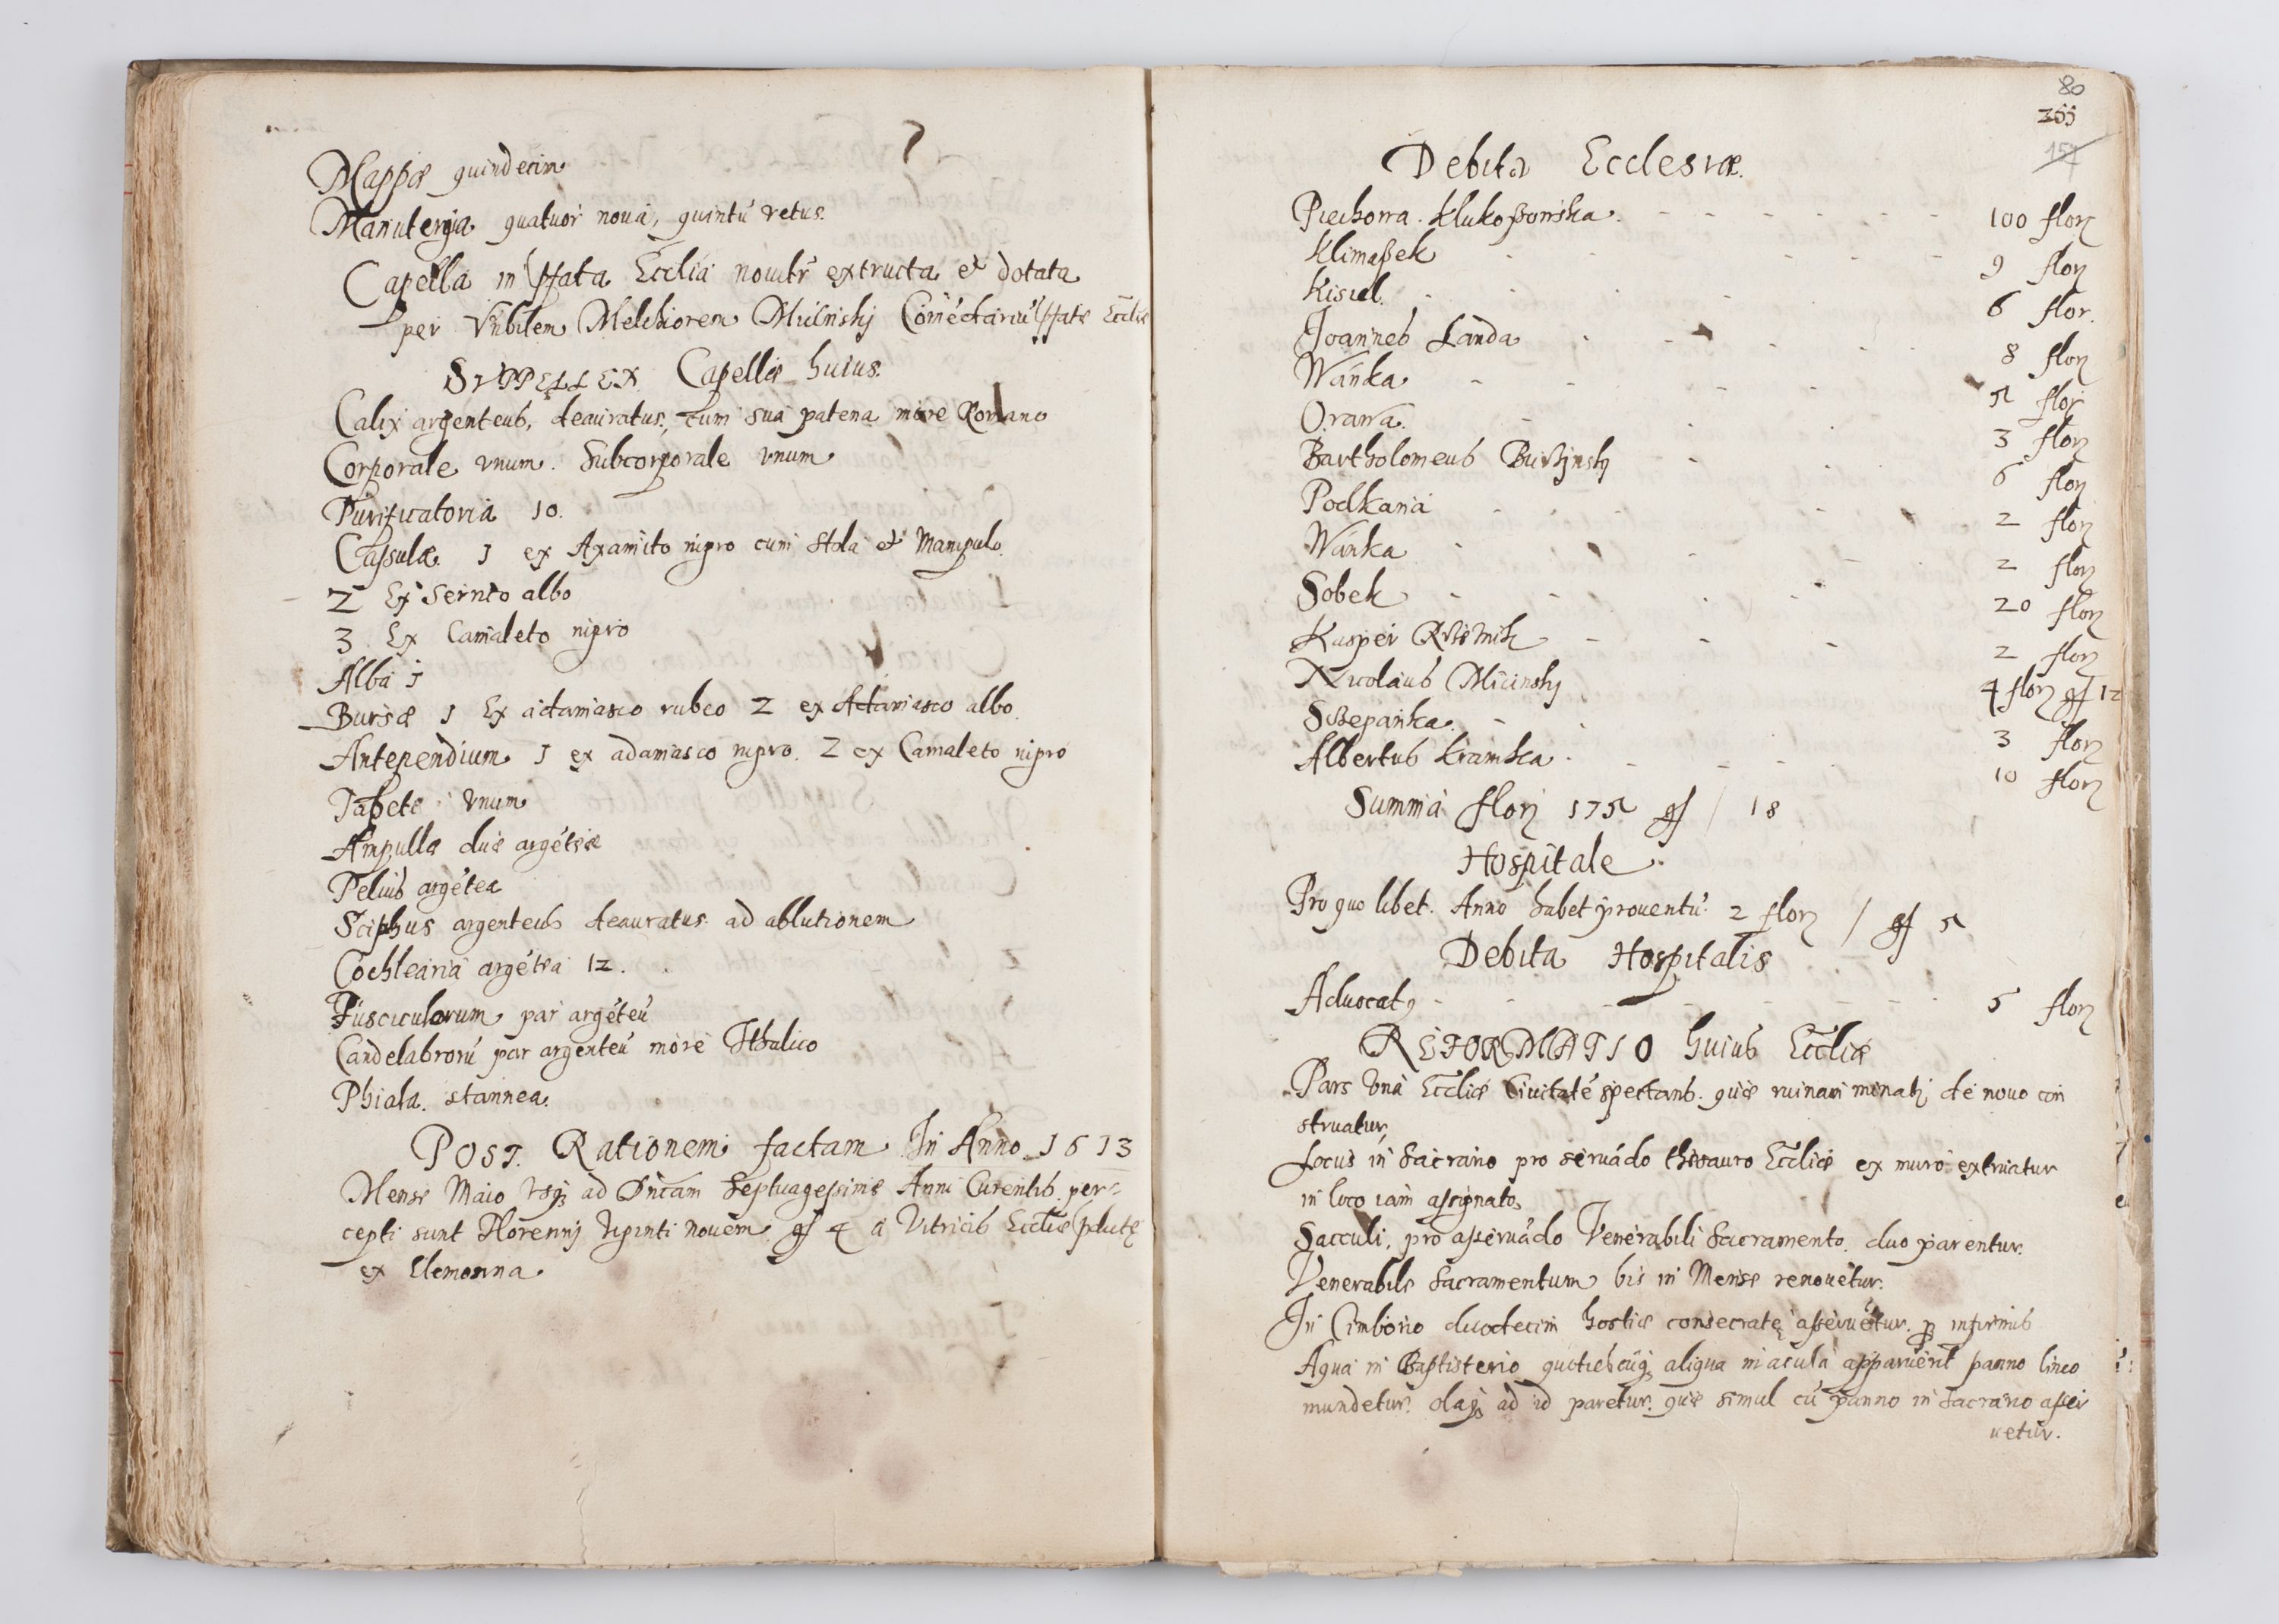 Mappæ quindecim
Manutergia quatuor nova, quintū vetus.
Capella in pfata Ecclia noviter extructa et dotata
per Vnbilem Melchiorem Micinskj Comēctariū pfatæ Eccliæ
SVPPELLEX Capellæ huius.
Calix argenteus, deauratus, cum sua patena more Romano
Corporale vnum. Subcorporale vnum
Purificatoria 10.
Casulæ. 1 ex Axamito nigro cum stola et Manipulo.
2 Ex albo
3 Ex Camaleto nigro
Alba 1
Bursæ 1 Ex adamasco rubeo 2 ex Adamasco albo.
Antependium 1 ex adamasco nigro. 2 ex Camaleto nigro
Tapete vnum
Ampullæ duæ argēteæ
Peluis argētea
Sciphus argenteus deauratus ad ablutionem
Cochlearia argētea 12.
Fusciculorum par argēteū
Candelabrorū par argenteū more Ithalico
Phiala stannea.
POST. Rationem factam In Anno 1613
Mense Maio vsq; ad Dnicam Septuagesimæ Anni Curentis per-
cepti sunt Florennj viginti novem gs 4 a Vitricis Eccliæ
ex Elemosina.
80
255
157
Debita Ecclesiæ.
Piechowa. Klukoßowska. 100 flor
Klimaßek 9 flor
Kisiel. 6 flor.
Joannes Landa 8 flor
Wańka 5 flor
Orawa. 3 flor
Bartholomeus 6 flor
Podkania 2 flor
Wańka 2 flor
Sobek 20 flor
Kasper 2 flor
Nicolaus Micinskj 4 flor gs 12
Sczepańka. 3 flor
Albertus Kramka. 10 flor
Summa flor 175 gs / 18
Hospitale.
Pro quo libet. Anno habet proventū 2 flor / gs 5
Debita Hospitalis
Aduocatꝯ 5 flor
REFORMATIO huius Eccliæ
Pars vna Eccliæ Ciuitatē spectans. quæ ruinam minat, de novo con
struatur,
Locus in Sacrario pro seruādo thesauro Eccliæ ex muro extruatur
in loco iam assignato,
Sacculi, pro asseruādo Venerabili Sacramento duo parentur.
Venerabile Sacramentum bis in Mense renovetur.
In Cimborio duodecim hostiæ consecratę asseruētur. p infirmis
Aqua in Baptisterio quotiescūq; aliqua macula apparuerit panno lineo
mundetur. olaq; ad id paretur. quæ simul cū panno in Sacrario asser
uetur.